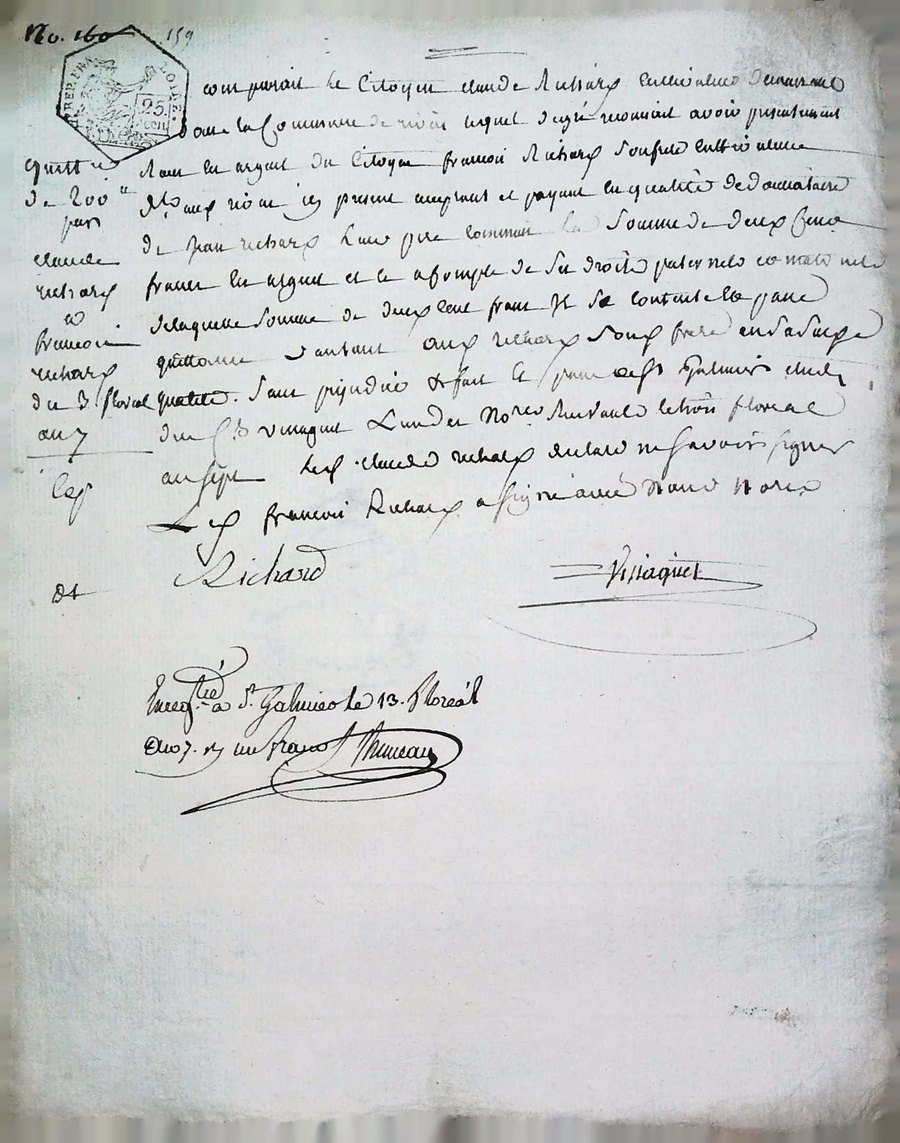 No. 160 159
REP. FRA. LOIRE.
25. cen
comparait le Citoyen claude Richard cultivateur demeurant
dans la Commune de lequel degré reconnait avoir presentement
Recu en argent du Citoyen francois Richard son frere cultivateur
present acceptant et payant en qualité de donnataire
de jean richard leur pere commun la Somme de deux Cent
francs en argent et a compte de Ses droits paternels et maternels
de laquelle Somme de deux Cent francs Se contente et passe
quittance d'autant aud richard Son frere en sa susd
qualité. Sans prejudice fait et passé a St Galmier
du Ct vissaguet L'un des Nores le trois floreal
an Sept Led. claude richard declaré ne Savoir Signer
Led francois Richard a Signé avec Nous Nore
Quittce
de 200tt
par
claude
richard
a
francois
richard
du 3 floreal
an 7
Richard
Vissaguet
Enregtré a St Galmier le 13. floréal
an 7. un franc